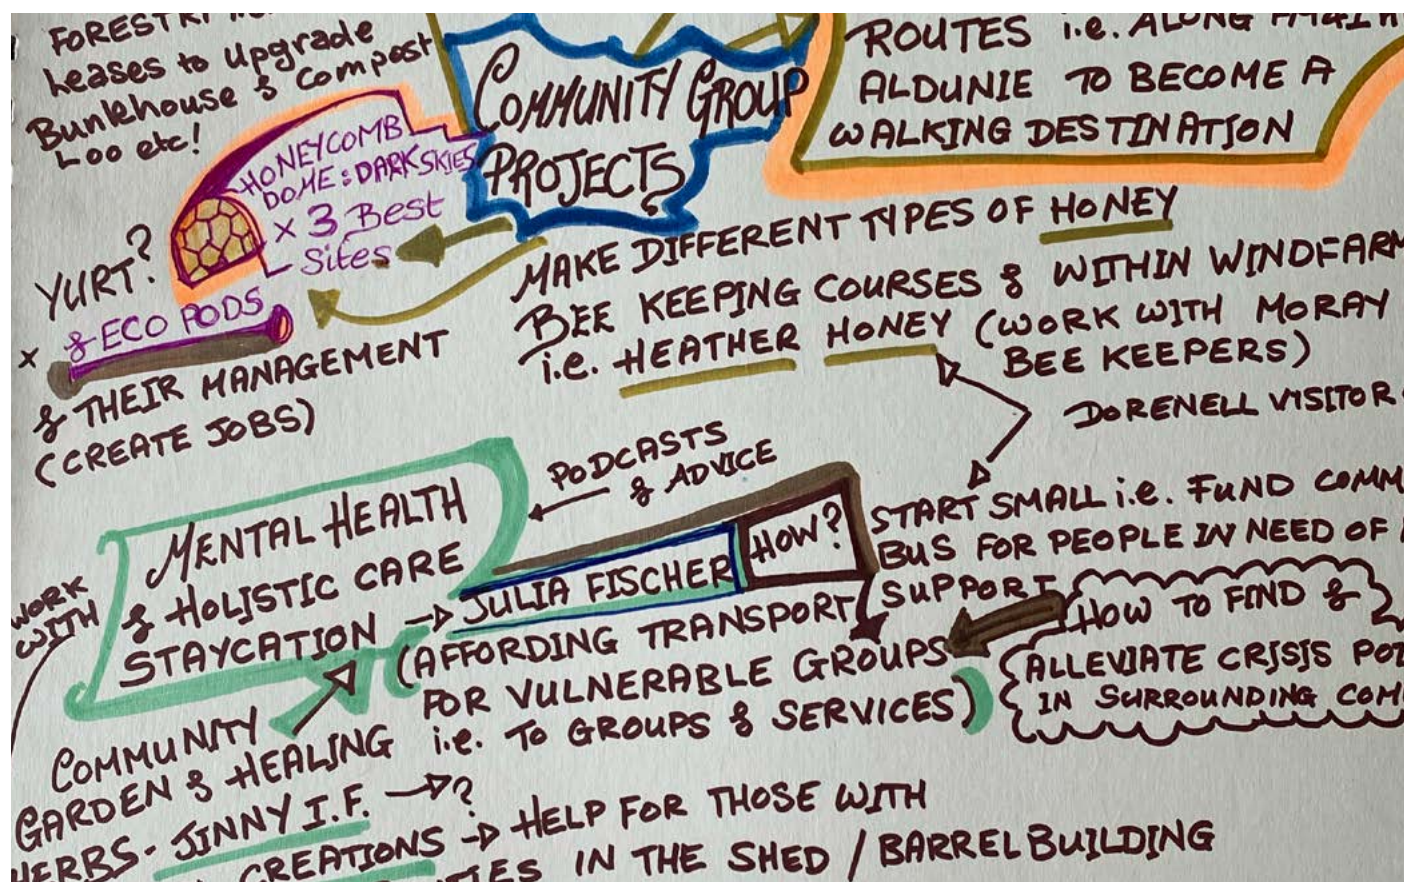 Leases to Upgrade
Bunkhouse & Compost
Loo etc!
COMMUNITY GROUP
PROJECTS
ROUTES i.e. ALONG
ALDUNIE TO BECOME A
WALKING DESTINATION
HONEYCOMB
DOME: DARK SKIES
x 3 Best
Sites
YURT?
x & ECO PODS
& THEIR MANAGEMENT
(CREATE JOBS)
MAKE DIFFERENT TYPES OF HONEY
BEE KEEPING COURSES & WITHIN WINDFARM
i.e. HEATHER HONEY (WORK WITH MORAY
BEE KEEPERS)
DORENELL VISITOR
PODCASTS
& ADVICE
MENTAL HEALTH
& HOLISTIC CARE
STAYCATION → JULIA FISCHER HOW?
(AFFORDING TRANSPORT
FOR VULNERABLE GROUPS
i.e. TO GROUPS & SERVICES)
START SMALL i.e. FUND COMM
BUS FOR PEOPLE IN NEED OF
SUPPORT
HOW TO FIND &
ALLEVIATE CRISIS POT
IN SURROUNDING COM
WORK
WITH
COMMUNITY
GARDEN & HEALING
HERBS - JINNY I.F. → ?
CREATIONS → HELP FOR THOSE WITH
IN THE SHED / BARREL BUILDING